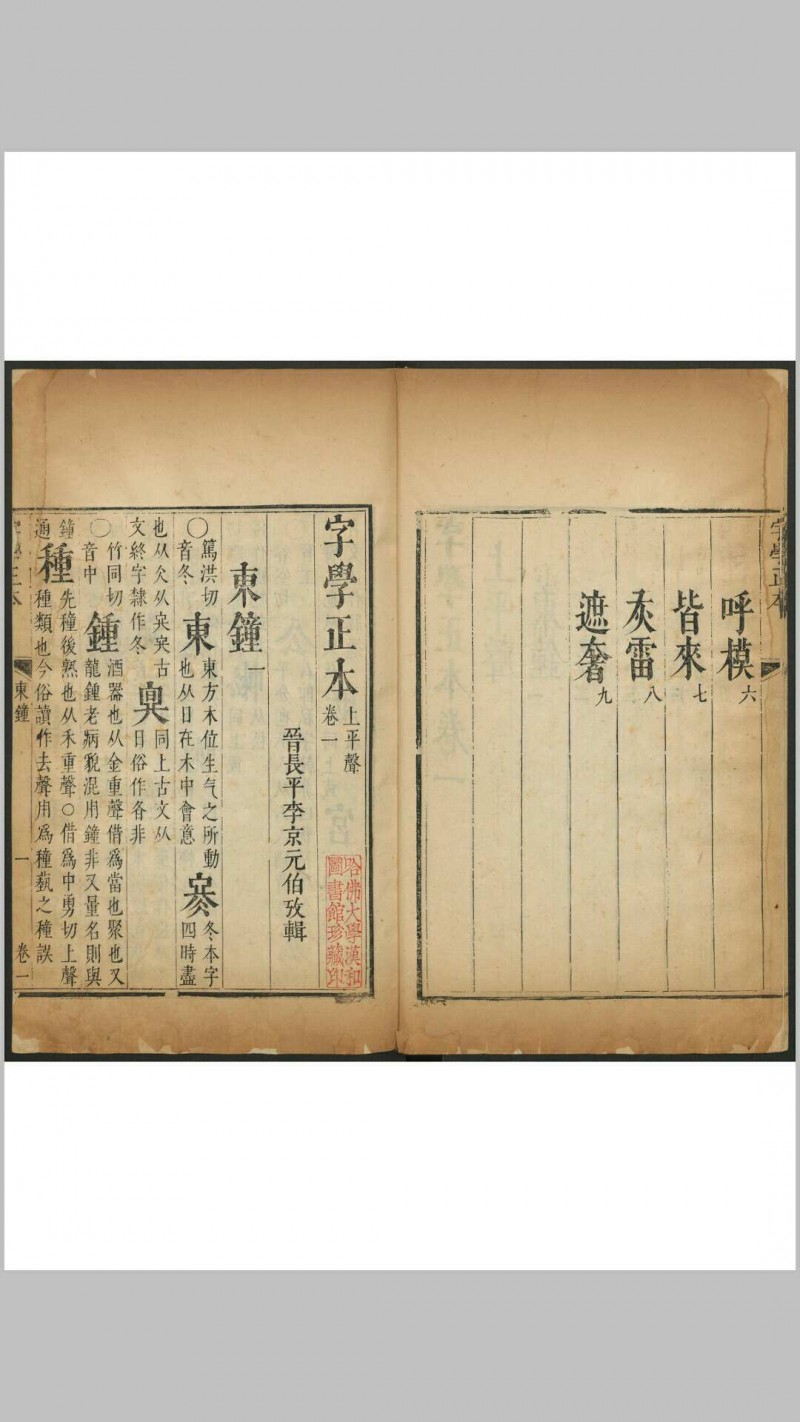 字學正本
呼模六
皆來七
灰雷八
遮奢九
字學正本 上平聲
卷一
晉長平李京元伯攷輯
哈佛大學漢和
圖書館珍藏印
東鐘一
〇篤洪切
音冬
東
東方木位生气之所動
也从日在木中會意
冬本字
四時盡
也从仌从𡨋𡨋古
文終字隷作冬
同上古文从
日俗作各非
竹同切
〇音中
鍾
酒器也从金重聲借爲當也聚也又
龍鍾老病貌混用鐘非又量名則與
鐘
通
種
先穜後熟也从禾重聲〇借爲中勇切上聲
種類也今俗讀作去聲用爲種蓺之種誤
字學正本
東鐘
一
卷一